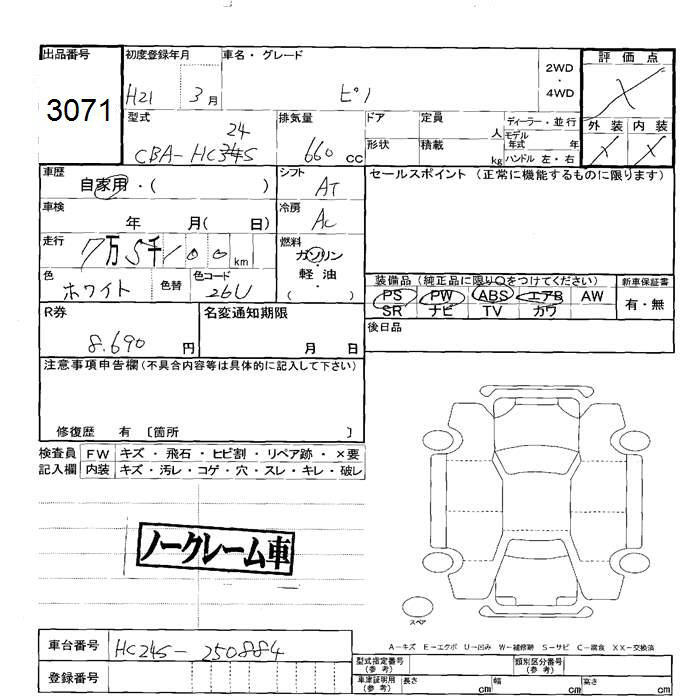 出品番号 初度登録年月 車名・グレード 評価点
3071 H21 3月 ピノ 2WD・4WD
外装 内装
型式 排気量 ドア 定員 人 ディーラー・並行
24
CBA-HC34S 660cc 形状 積載 kg モデル年式 年
ハンドル 左・右
車歴 シフト セールスポイント (正常に機能するものに限ります)
自家用・( ) AT
車検 冷房
年 月( 日) AC
走行 燃料
7万5千100km ガソリン・軽油
( )
色 色替 色コード 装備品(純正品に限り○をつけてください) 新車保証書
ホワイト 26U PS PW ABS エアB AW 有・無
SR ナビ TV カワ
R券 名変通知期限 後日品
8.690円 月 日
注意事項申告欄(不具合内容等は具体的に記入して下さい)
修復歴 有 〔箇所 〕
検査員 FW キズ・飛石・ヒビ割・リペア跡・×要
記入欄 内装 キズ・汚レ・コゲ・穴・スレ・キレ・破レ
ノークレーム車
スペア
A-キズ E-エクボ U-凹み W-補修跡 S-サビ C-腐食 XX-交換済
車台番号 HC24S-250884
型式指定番号(参考) 類別区分番号(参考)
登録番号 車庫証明用(参考) 長さ cm 幅 cm 高さ cm